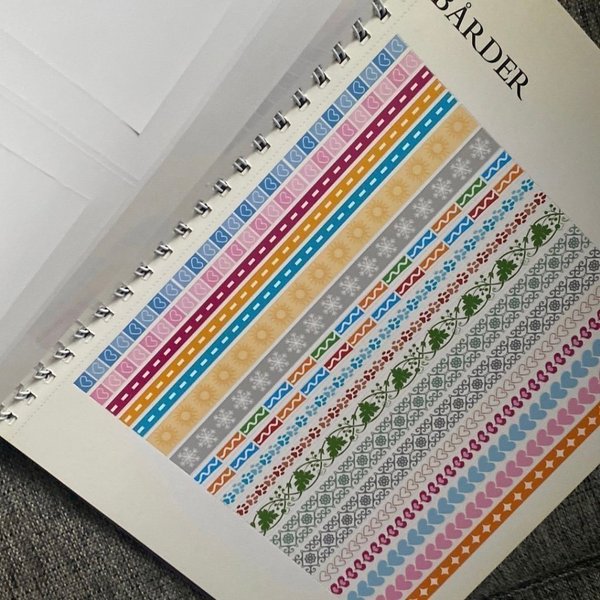 BÅRDER